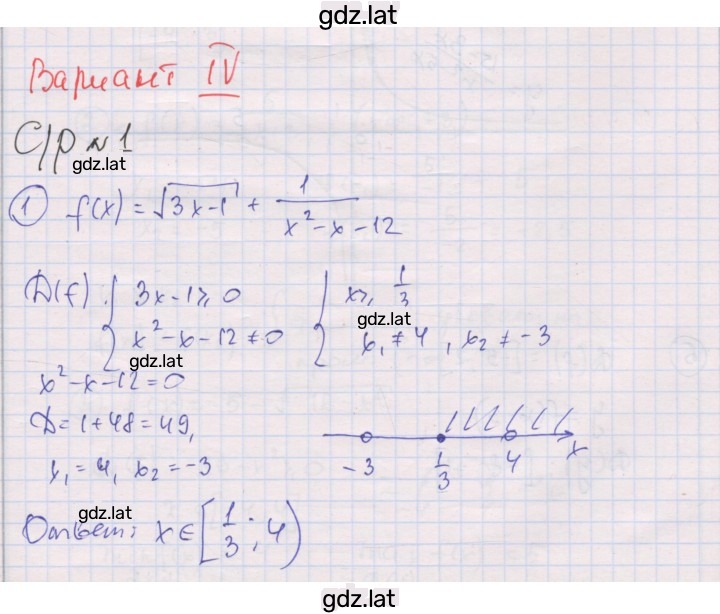 gdz.lat
Вариант IV
С/р № 1
gdz.lat
1 f(x) = √3x-1 + 1/(x²-x-12)
D(f) { 3x-1 ≥ 0 { x ≥ 1/3
gdz.lat
x²-x-12 ≠ 0 x₁ ≠ 4, x₂ ≠ -3
gdz.lat
x²-x-12=0
D=1+48=49,
x₁=4, x₂=-3
-3 1/3 4 x
gdz.lat
Ответ: x ∈ [1/3; 4)
gdz.lat